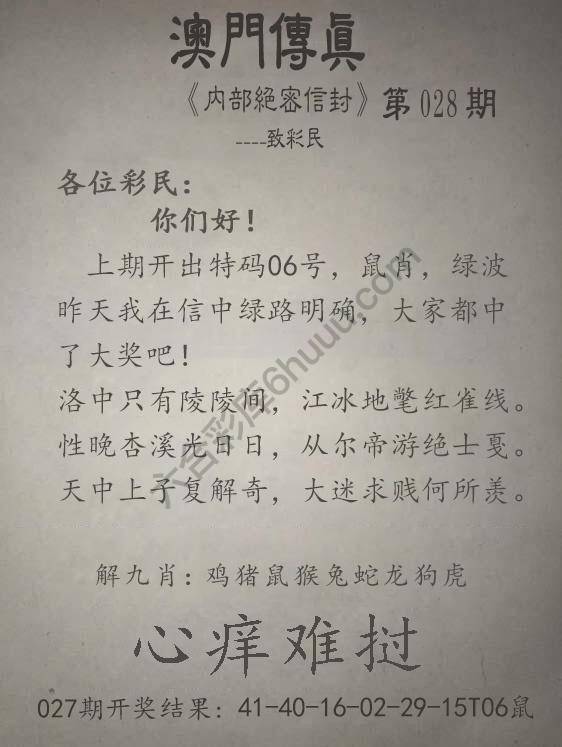 澳門傳真
《内部絕密信封》第028期
----致彩民
各位彩民：
你们好！
上期开出特码06号，鼠肖，绿波
昨天我在信中绿路明确，大家都中
了大奖吧！
洛中只有陵陵间，江冰地氅红雀线。
性晚杏溪光日日，从尔帝游绝士戛。
天中上子复解奇，大迷求贱何所羡。
六合彩库6huuu.com
解九肖：鸡猪鼠猴兔蛇龙狗虎
心痒难挝
027期开奖结果：41-40-16-02-29-15T06鼠